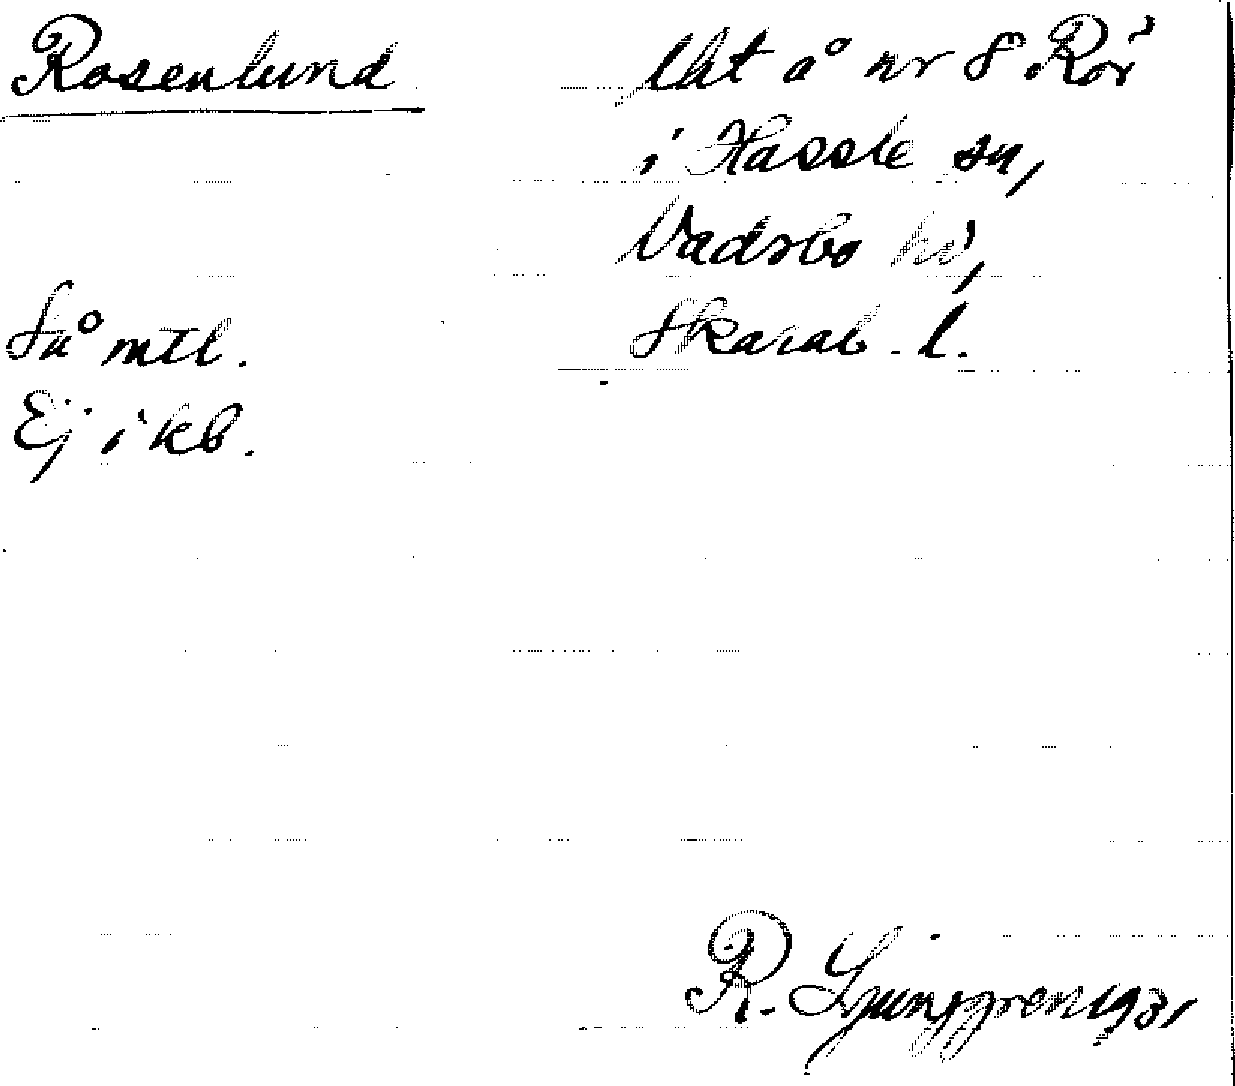 Rosenlund
Lht å nr 8 Rör
i Hassle sn,
Vadsbo hd,
Skarab. l.
Så mtl.
Ej i kb.
R. Ljunggren 1931